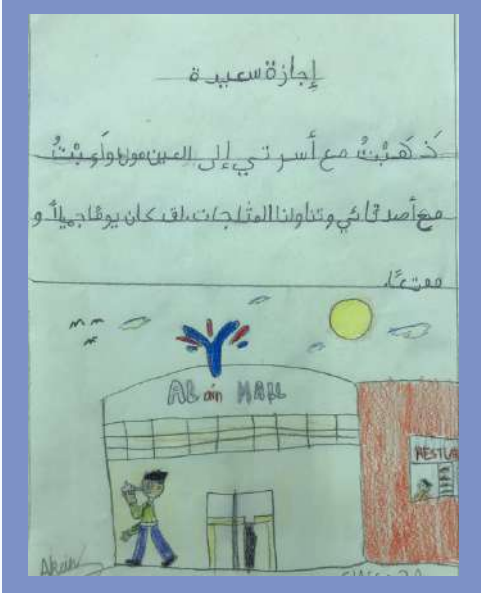 إجازة سعيدة
ذَهَبْتُ مع أسرتي إلى العين مول ولَعِبْتُ
مع أصدقائي وتناولنا المثلجات، لقد كان يومًا جميلًا و
ممتعًا.
AL ain MALL
RESTUA